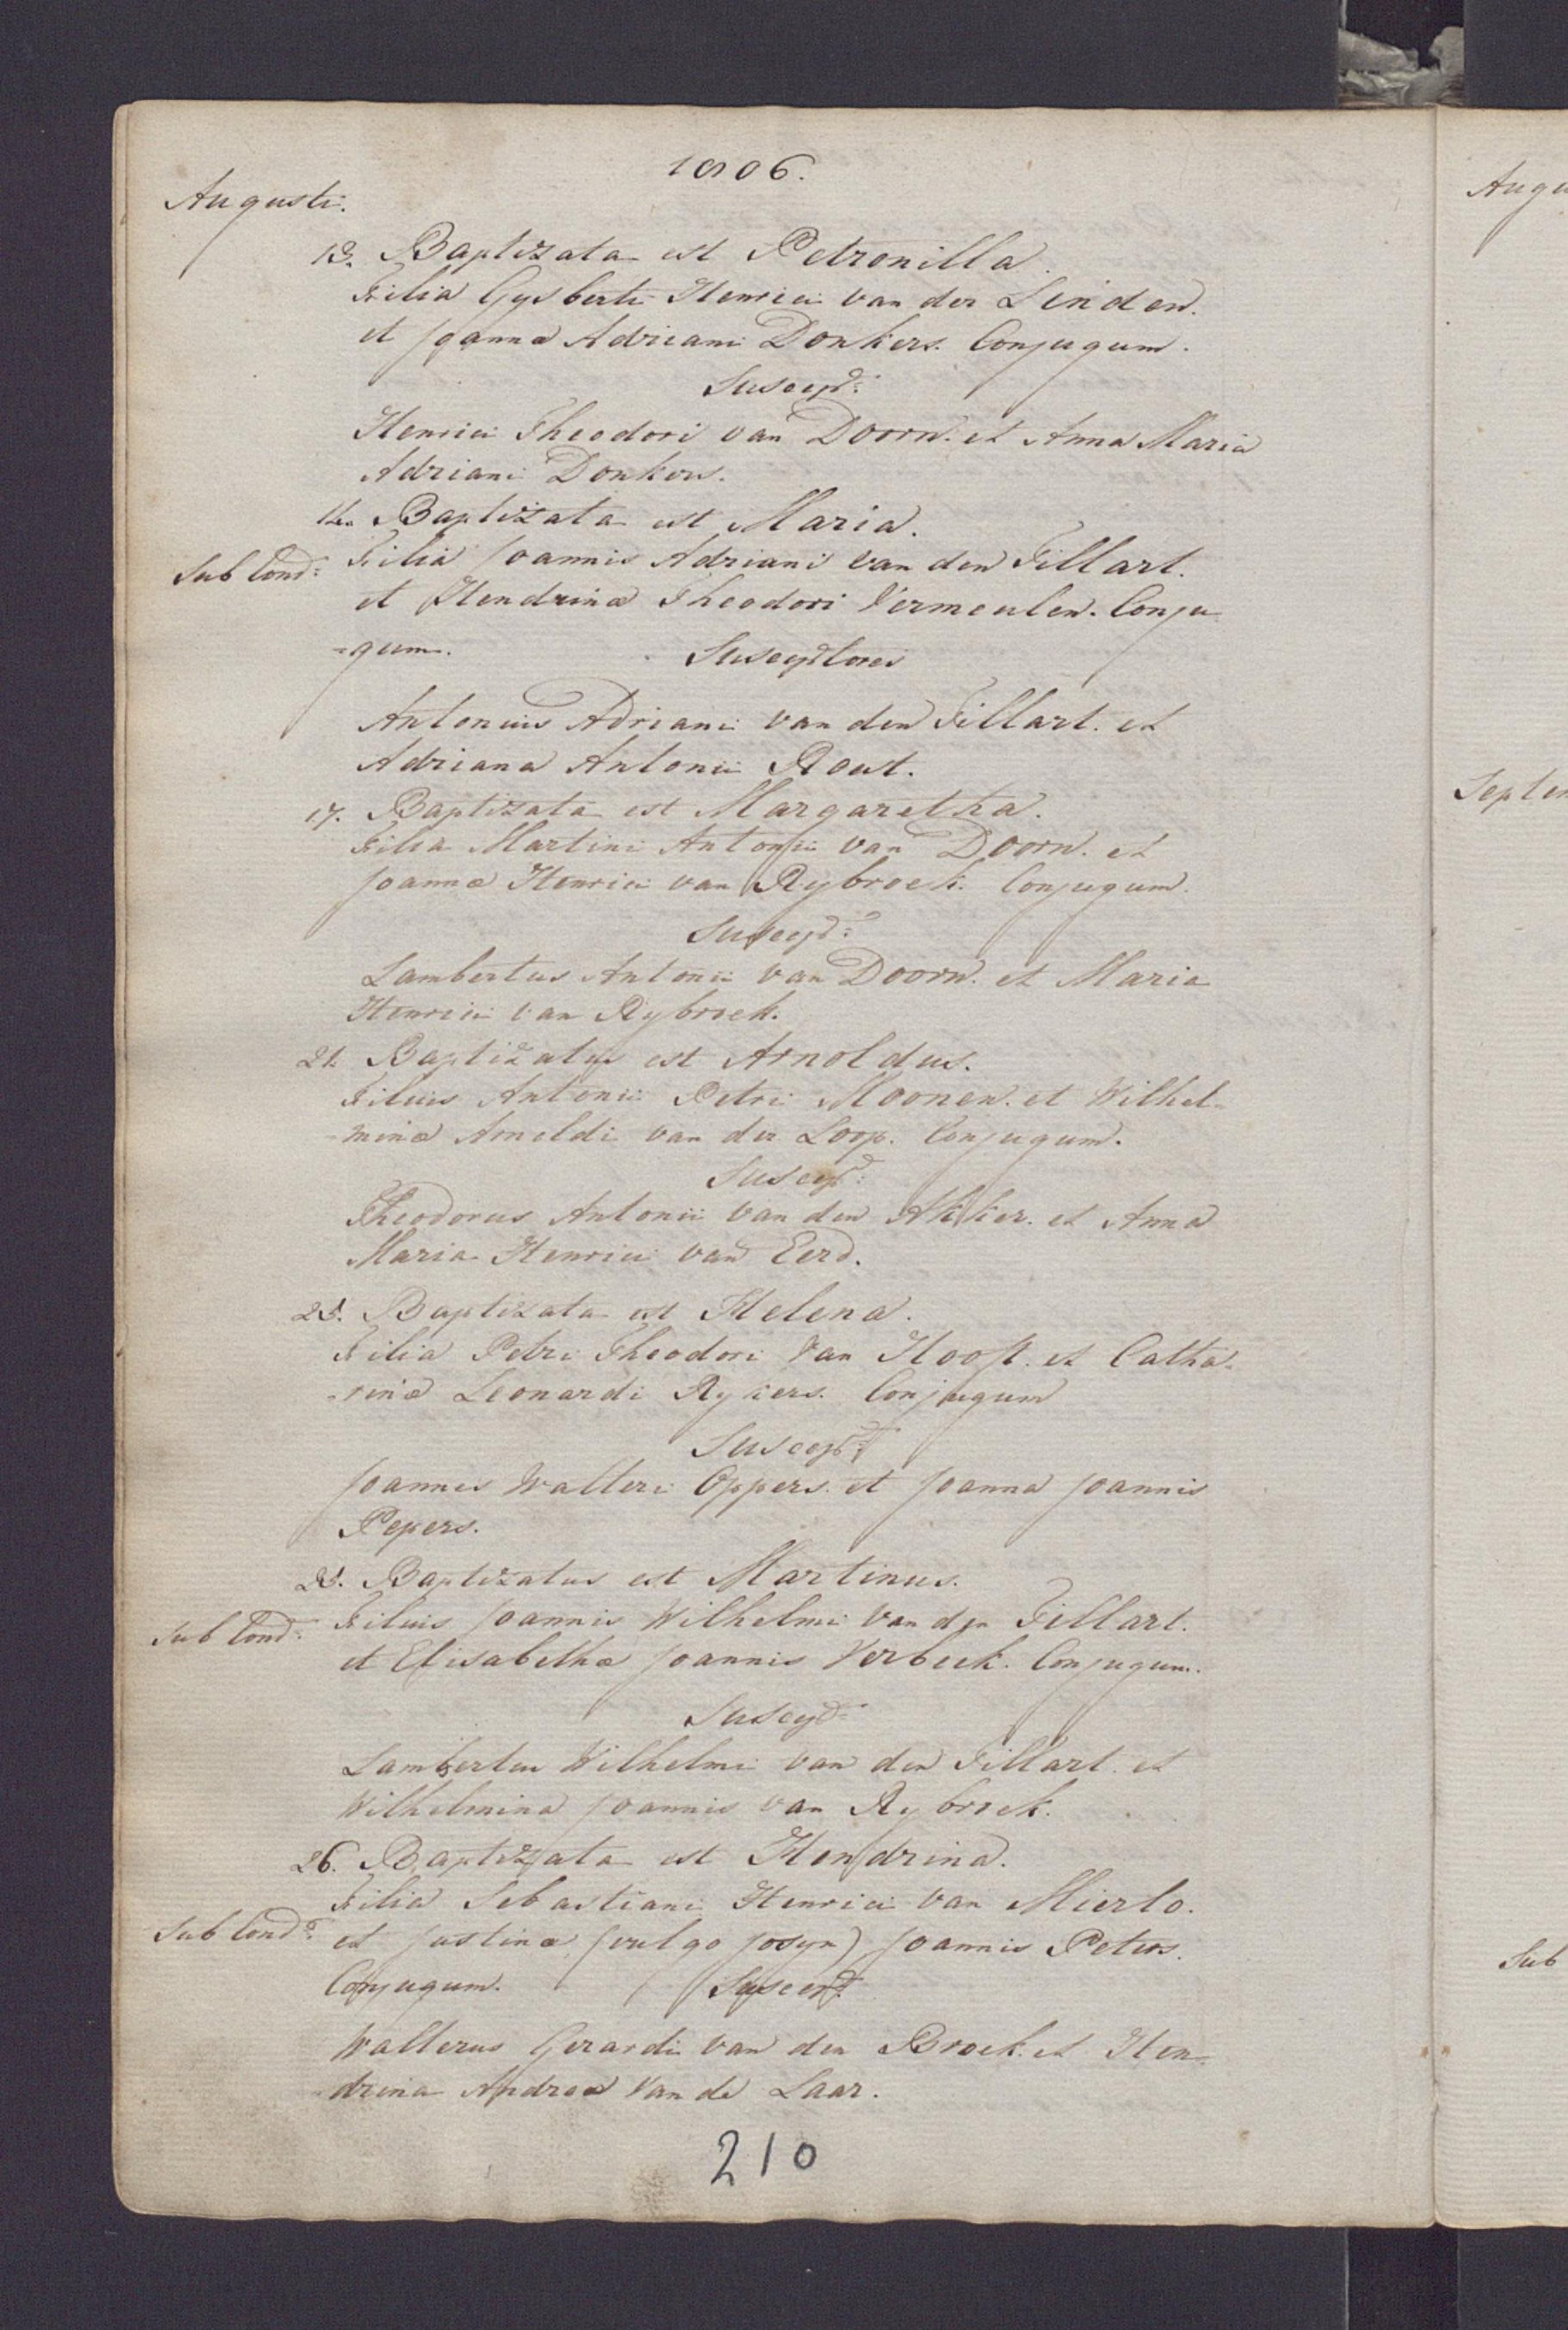 1806.
Augusti.
13. Baptizata est Petronilla.
Filia Gysberti Henrici van der Linden.
et Joanna Adriani Donkers. Conjugum.
Suscept:
Henrici Theodori van Doorn. et Anna Maria
Adriani Donkers.
14. Baptizata est Maria.
Sub Cond: Filia Joannis Adriani van den Tillart.
et Hendrina Theodori Vermeulen. Conju
=gum. Susceptores
Antonius Adriani van den Tillart. et
Adriana Antonii Rout.
17. Baptizata est Margaretha.
Filia Martini Antonii van Doorn. et
Joannæ Henrici van Rybroek. Conjugum.
Suscept:
Lambertus Antonii van Doorn. et Maria
Henrici van Rybroek.
21. Baptizatus est Arnoldus.
Filius Antonii Petri Moonen. et Wilhel=
=minæ Arnoldi van der Loop. Conjugum.
Suscept:
Theodorus Antonii van den Akker. et Anna
Maria Henrici van Eerd.
25. Baptizata est Helena.
Filia Petri Theodori Van Hooft. et Catha=
=rinæ Leonardi Rykers. Conjugum
Suscept:
Joannes Walteri Oppers. et Joanna Joannis
Pepers.
25. Baptizatus est Martinus.
Sub Cond: Filius Joannis Wilhelmi van den Tillart.
et Elisabethæ Joannis Verbeek. Conjugum.
Suscept:
Lambertus Wilhelmi van den Tillart. et
Wilhelmina Joannis van Rybroek.
26. Baptizata est Hendrina.
Filia Sebastiani Henrici van Mierlo.
Sub Cond: et Justinæ (vulgo Josyn) Joannis Peters.
Conjugum. Suscept:
Walterus Gerardi van den Broek. et Hen=
=drina Andreæ Van de Laar.
210
Augu
Septem
Sub